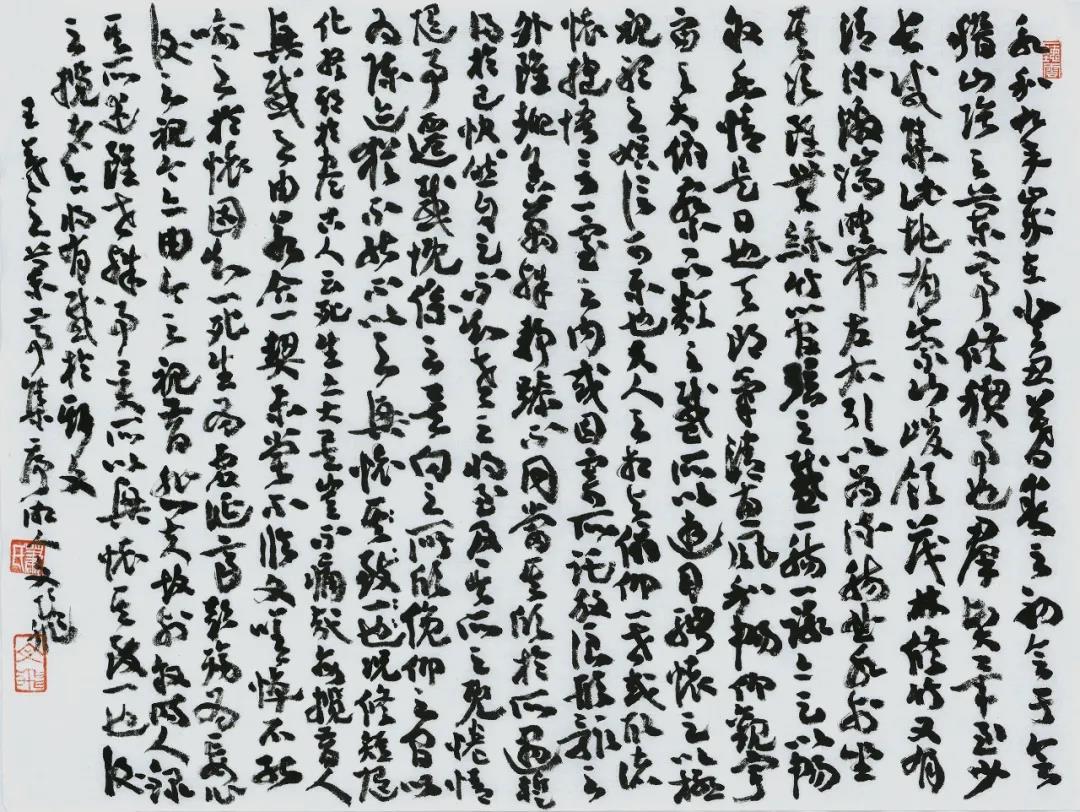 永和九年歲在癸丑暮春之初會于會
稽山陰之蘭亭修禊事也群賢畢至少
長咸集此地有崇山峻領茂林修竹又有
清流激湍暎帶左右引以為流觴曲水列坐
其次雖無絲竹管弦之盛一觴一詠亦足以暢
敘幽情是日也天朗氣清惠風和暢仰觀宇
宙之大俯察品類之盛所以遊目騁懷足以極
視聽之娛信可樂也夫人之相與俯仰一世或取諸
懷抱悟言一室之內或因寄所託放浪形骸之
外雖趣舍萬殊靜躁不同當其欣於所遇蹔
得於己快然自足不知老之將至及其所之既惓情
隨事遷感慨係之矣向之所欣俛仰之間以
為陳迹猶不能不以之興懷其致一也况修短隨
化終期於盡古人云死生亦大矣豈不痛哉每攬昔人
興感之由若合一契未嘗不臨文嗟悼不能
喻之於懷固知一死生為虛誕齊彭殤為妄
後之視今亦由今之視昔悲夫故列敘時人錄
其所述雖世殊事異所以興懷其致一也後
之攬者亦將有感於斯文
王羲之蘭亭集序
文飛